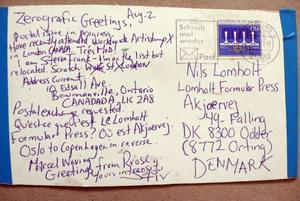 Zerografic Greetings; Aug. 2
Postal issue in progress
Have recently attended world of Artistamp X
in London CANADA. Très Hot!
I am Sterin Frank - I'm on the list but
relocated. Scratch London
Address Current:
10 Edsall Ave
Bowmanville, Ontario
CANADADA, L1C 2A8
Postal exchange requested.
Qu'est ce que c'est Le Lomholt
Formular Press? Où est Akjærvej.
Oslo to Copenhagen in reverse.
Marcel Waving from Rrose y
Greetings yours in transit
Schreib
mal
wieder
Post
Nils Lomholt
Lomholt Formular Press
Akjærvej
Falling
DK 8300 Odder
(8772 Ørting)
DENMARK